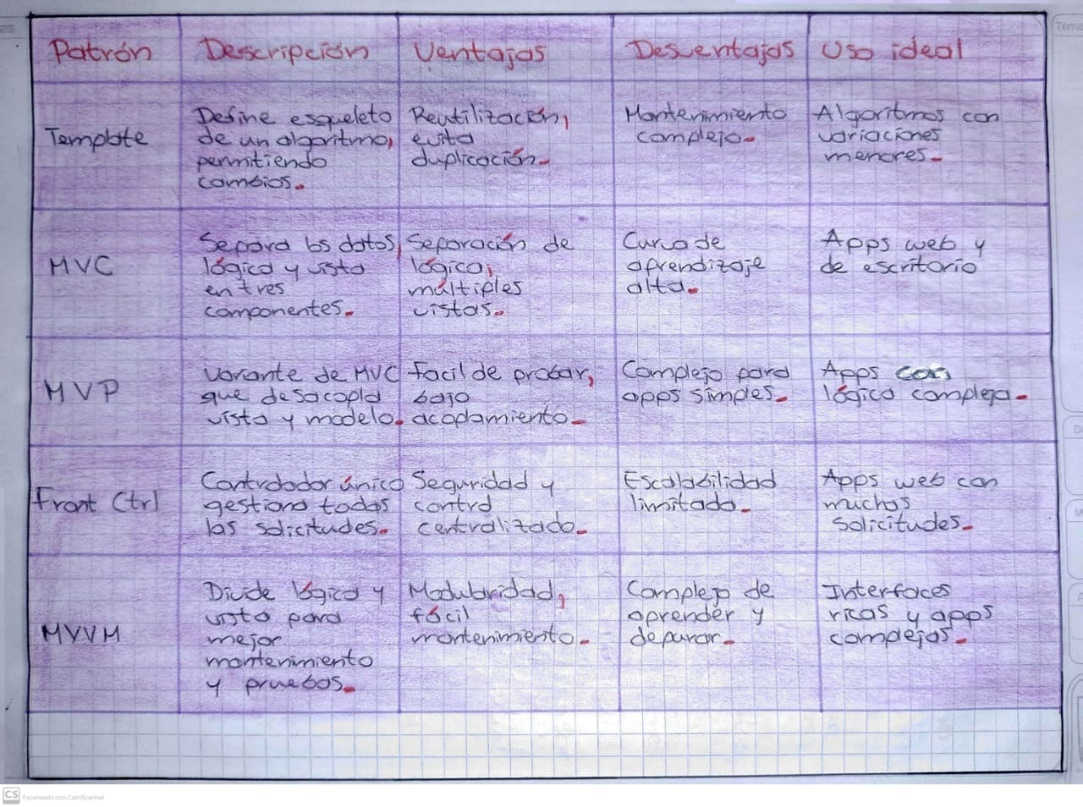 Patrón Descripción Ventajas Desventajas Uso ideal
Template
Define esqueleto
de un algoritmo,
permitiendo
cambios.
Reutilización,
evita
duplicación.
Mantenimiento
complejo.
Algoritmos con
variaciones
menores.
MVC
Separa los datos,
lógica y vista
en tres
componentes.
Separación de
lógica,
múltiples
vistas.
Curva de
aprendizaje
alta.
Apps web y
de escritorio
MVP
Variante de MVC
que desacopla
vista y modelo.
facil de probar,
bajo
acoplamiento.
Complejo para
apps simples.
Apps con
lógica compleja.
Front Ctrl
Controlador único
gestiona todas
las solicitudes.
Seguridad y
control
centralizado.
Escalabilidad
limitada.
Apps web con
muchas
solicitudes.
MVVM
Divide lógica y
vista para
mejor
mantenimiento
y pruebas.
Modularidad,
fácil
mantenimiento.
Complejo de
aprender y
depurar.
Interfaces
ricas y apps
complejas.
CS Escaneado con CamScanner